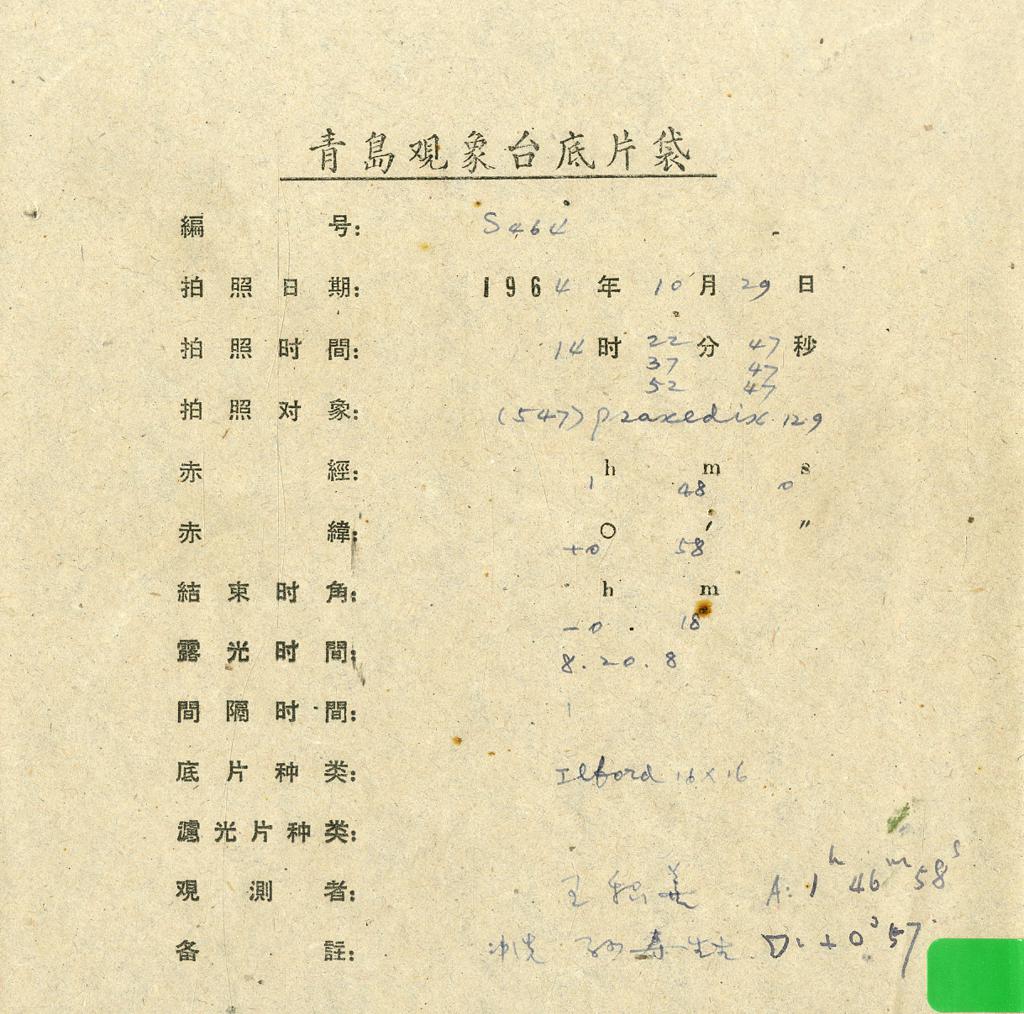 青島观象台底片袋
編号: S464
拍照日期: 1964年10月29日
拍照时間: 14时22分47秒
37 47
52 47
拍照对象: (547) praxedix 129
赤經: 1h 48m 0s
赤緯: +0° 58′ ″
結束时角: -0h 18m
露光时間: 8.20.8
間隔时間: 1
底片种类: Ilford 16×16
濾光片种类:
观測者: 王 A: 1h 46m 58s
备註: 冲洗 D: +0° 57